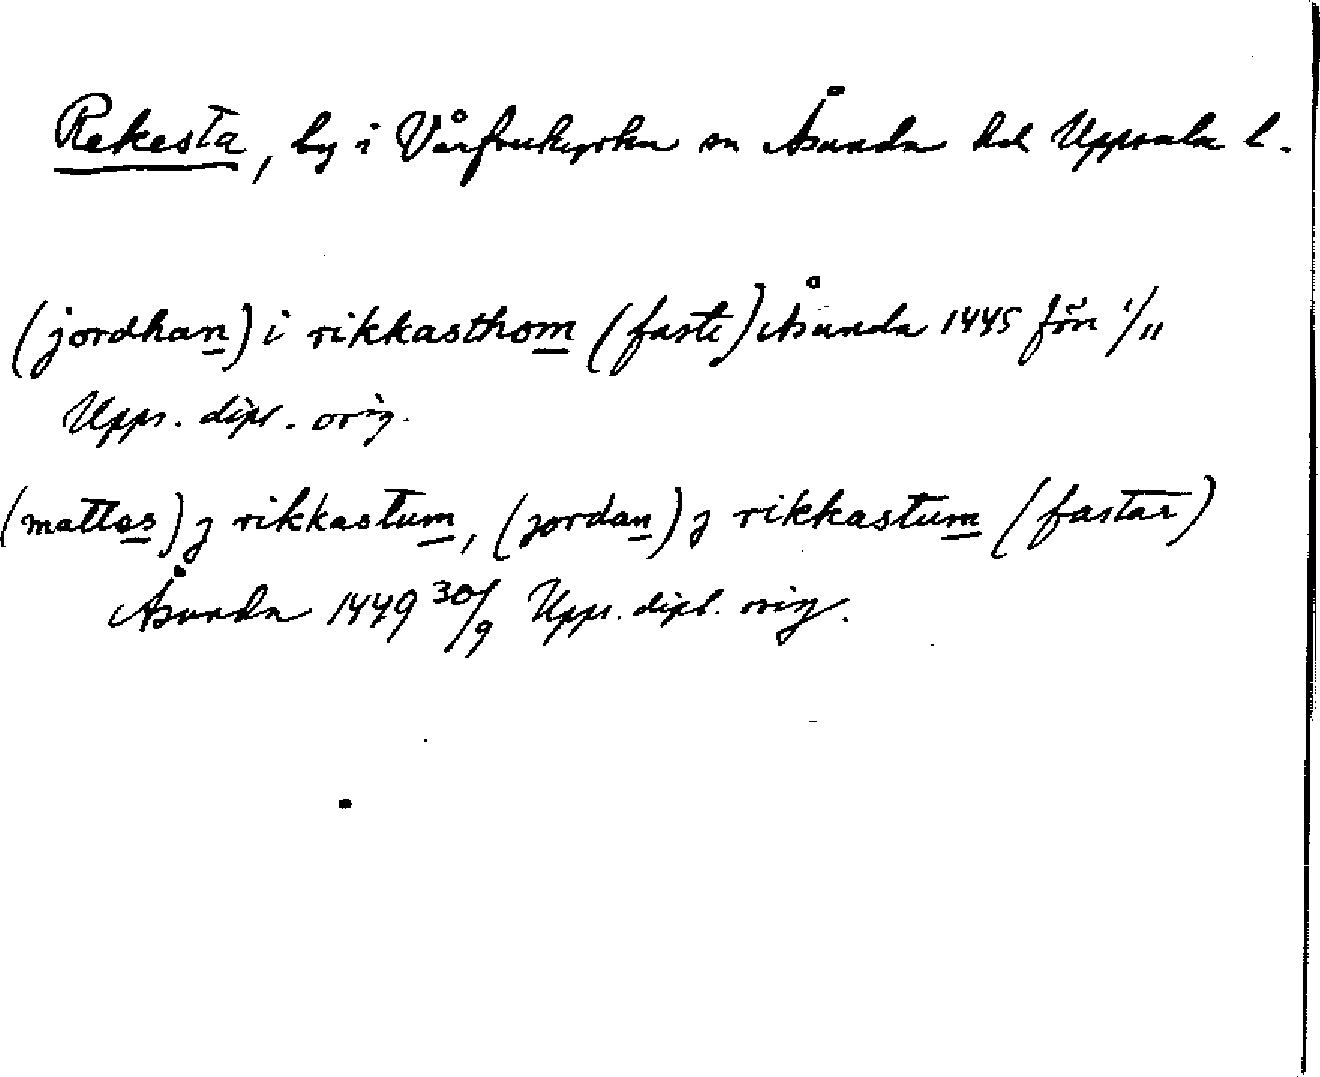 Rekesta, by i Vårfrukyrka sn Åsunda hd Uppsala l.
(jordhan) i rikkasthom (faste) Åsunda 1445 fön 1/11
Upps. dipl. orig.
(mattes) j rikkastum, (jordan) j rikkastum (fastar)
Åsunda 1449 30/9 Upps. dipl. orig.